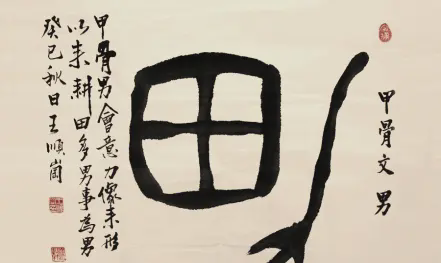 甲骨文 男
男
甲骨男會意力像耒形
以耒耕田多男事為男
癸巳秋日王順崗